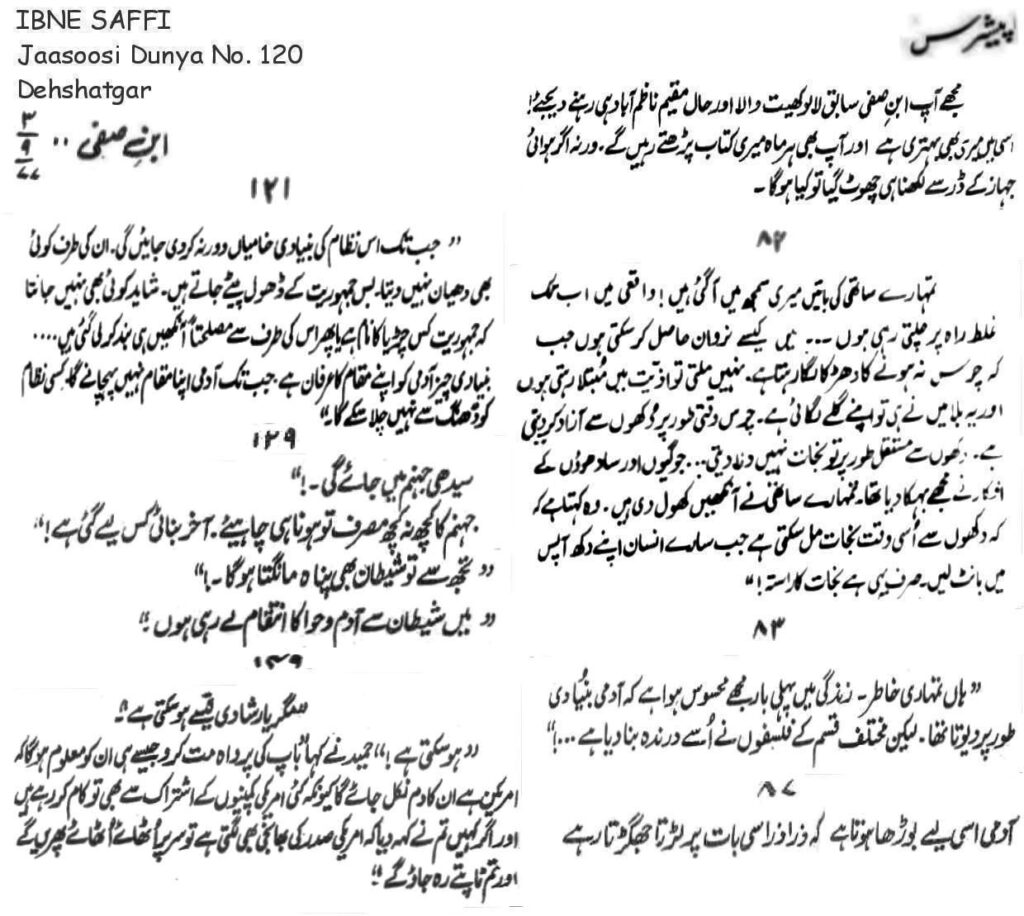 IBNE SAFFI
Jaasoosi Dunya No. 120
Dehshatgar
پیشرس
مجھے آپ ابنِ صفی سابق لالو کھیت والا اور حال مقیم ناظم آباد ہی رہنے دیجئے!
اسی میں میری بھی بہتری ہے اور آپ بھی ہر ماہ میری کتاب پڑھتے رہیں گے۔ ورنہ اگر ہوائی
جہاز کے ڈر سے لکھنا ہی چھوٹ گیا تو کیا ہوگا۔
ابنِ صفی ..
۳
۹
۷۷
۸۲
تمہارے ساتھی کی باتیں میری سمجھ میں آگئی ہیں! واقعی میں اب تک
غلط راہ پر چلتی رہی ہوں ... میں کیسے نروان حاصل کر سکتی ہوں جب
کہ چرس نہ ہونے کا دھڑکا لگا رہتا ہے۔ نہیں ملتی تو اذیت میں مبتلا رہتی ہوں
اور یہ بلا میں نے ہی تو اپنے گلے لگائی ہے۔ چرس وقتی طور پر دُکھوں سے آزاد کر دیتی
ہے۔ دکھوں سے مستقل طور پر تو نجات نہیں دلا دیتی... جوگیوں اور سادھوؤں کے
افکار نے مجھے بہکا دیا تھا۔ تمہارے ساتھی نے آنکھیں کھول دی ہیں۔ وہ کہتا ہے کہ
کہ دکھوں سے اُسی وقت نجات مل سکتی ہے جب سارے انسان اپنے دکھ آپس
میں بانٹ لیں۔ صرف یہی ہے نجات کا راستہ!"
۸۳
"ہاں تمہاری خاطر۔ زندگی میں پہلی بار مجھے محسوس ہوا ہے کہ آدمی بنیادی
طور پر دیوتا تھا۔ لیکن مختلف قسم کے فلسفوں نے اُسے درندہ بنا دیا ہے...!"
۸۷
آدمی اسی لیے بوڑھا ہوتا ہے کہ ذرا ذرا سی بات پر لڑتا جھگڑتا رہے
۱۲۱
"جب تک اس نظام کی بنیادی خامیاں دور نہ کر دی جائیں گی۔ ان کی طرف کوئی
بھی دھیان نہیں دیتا۔ بس جمہوریت کے ڈھول پیٹے جاتے ہیں۔ شاید کوئی بھی نہیں جانتا
کہ جمہوریت کس چڑیا کا نام ہے یا پھر اس کی طرف سے مصلحتاً آنکھیں ہی بند کرلی گئی ہیں....
بنیادی چیز آدمی کو اپنے مقام کا عرفان ہے۔ جب تک آدمی اپنا مقام نہیں پہچانے گا۔ کسی نظام
کو ڈھنگ سے نہیں چلا سکے گا۔"
۱۳۹
سیدھی جہنم میں جائے گی۔!"
جہنم کا کچھ نہ کچھ مصرف تو ہونا ہی چاہیئے۔ آخر بنائی کس لیے گئی ہے!"
"تجھ سے تو شیطان بھی پناہ مانگتا ہوگا۔!"
"میں شیطان سے آدم و حوا کا انتقام لے رہی ہوں۔"
۱۴۹
"مگر یار شادی کیسے ہو سکتی ہے"۔
"ہو سکتی ہے!" حمید نے کہا "باپ کی پرواہ مت کرو جیسے ہی ان کو معلوم ہوگا کہ
امریکن ہے ان کا دم نکل جائے گا کیونکہ کئی امریکی کمپنیوں کے اشتراک سے بھی تو کام کر رہے ہیں
اور اگر کہیں تم نے کہہ دیا کہ امریکی صدر کی بھانجی بھی لگتی ہے تو سر پر اُٹھائے اُٹھائے پھریں گے
اور تم ٹاپتے رہ جاؤ گے"